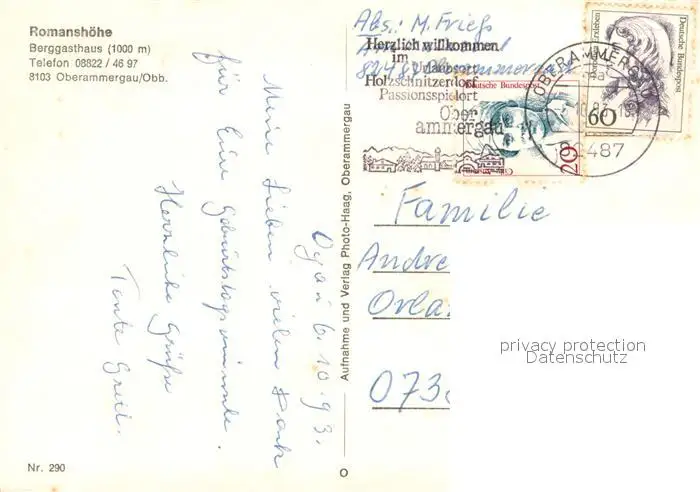 Romanshöhe
Berggasthaus (1000 m)
Telefon 08822 / 46 97
8103 Oberammergau/Obb.
Ogau 6.10.93.
Meine Lieben vielen Dank
für Eure Geburtstagswünsche.
Herzliche Grüße
Tante Gretl.
Nr. 290
Aufnahme und Verlag Photo-Haag, Oberammergau
Abs: M. Frieß
Herzlich willkommen
im Urlaubsort
Holzschnitzerdorf
Passionsspielort
Ober
ammergau
Deutsche Bundespost
20
Deutsche Bundespost
60
OBERAMMERGAU
82487
Familie
Andre
Orla
073
privacy protection
Datenschutz